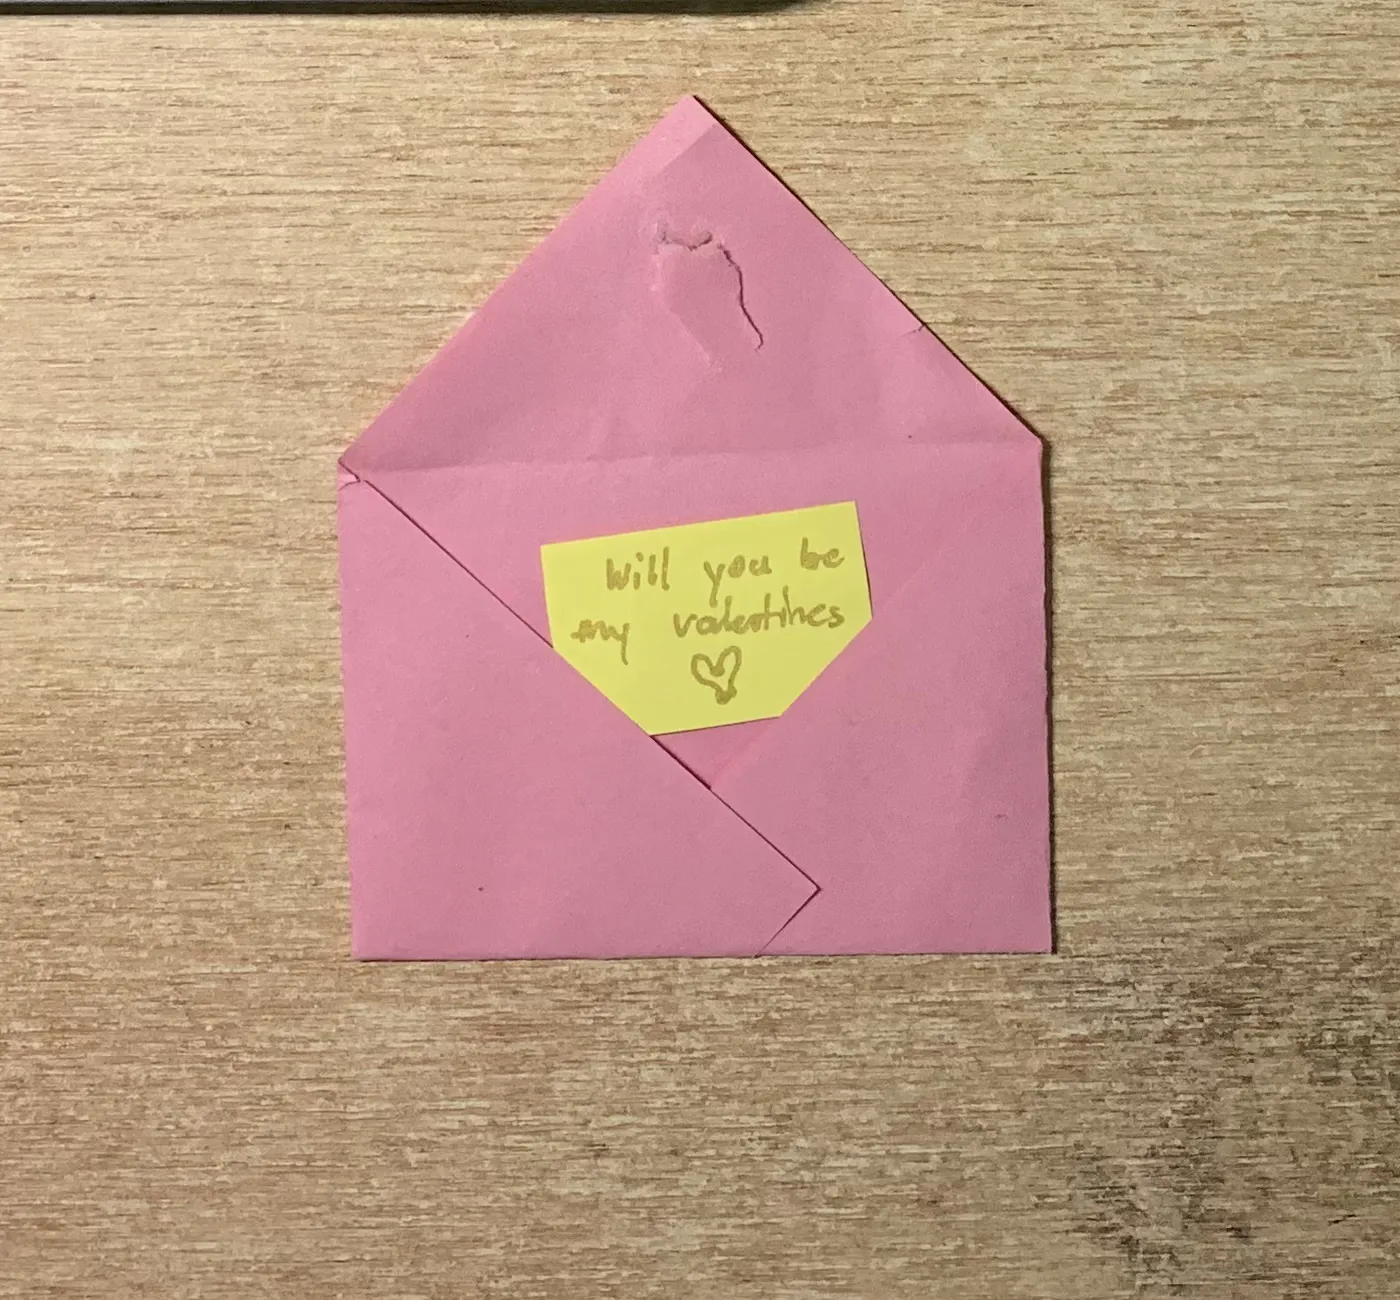 Will you be
my valentines
♡